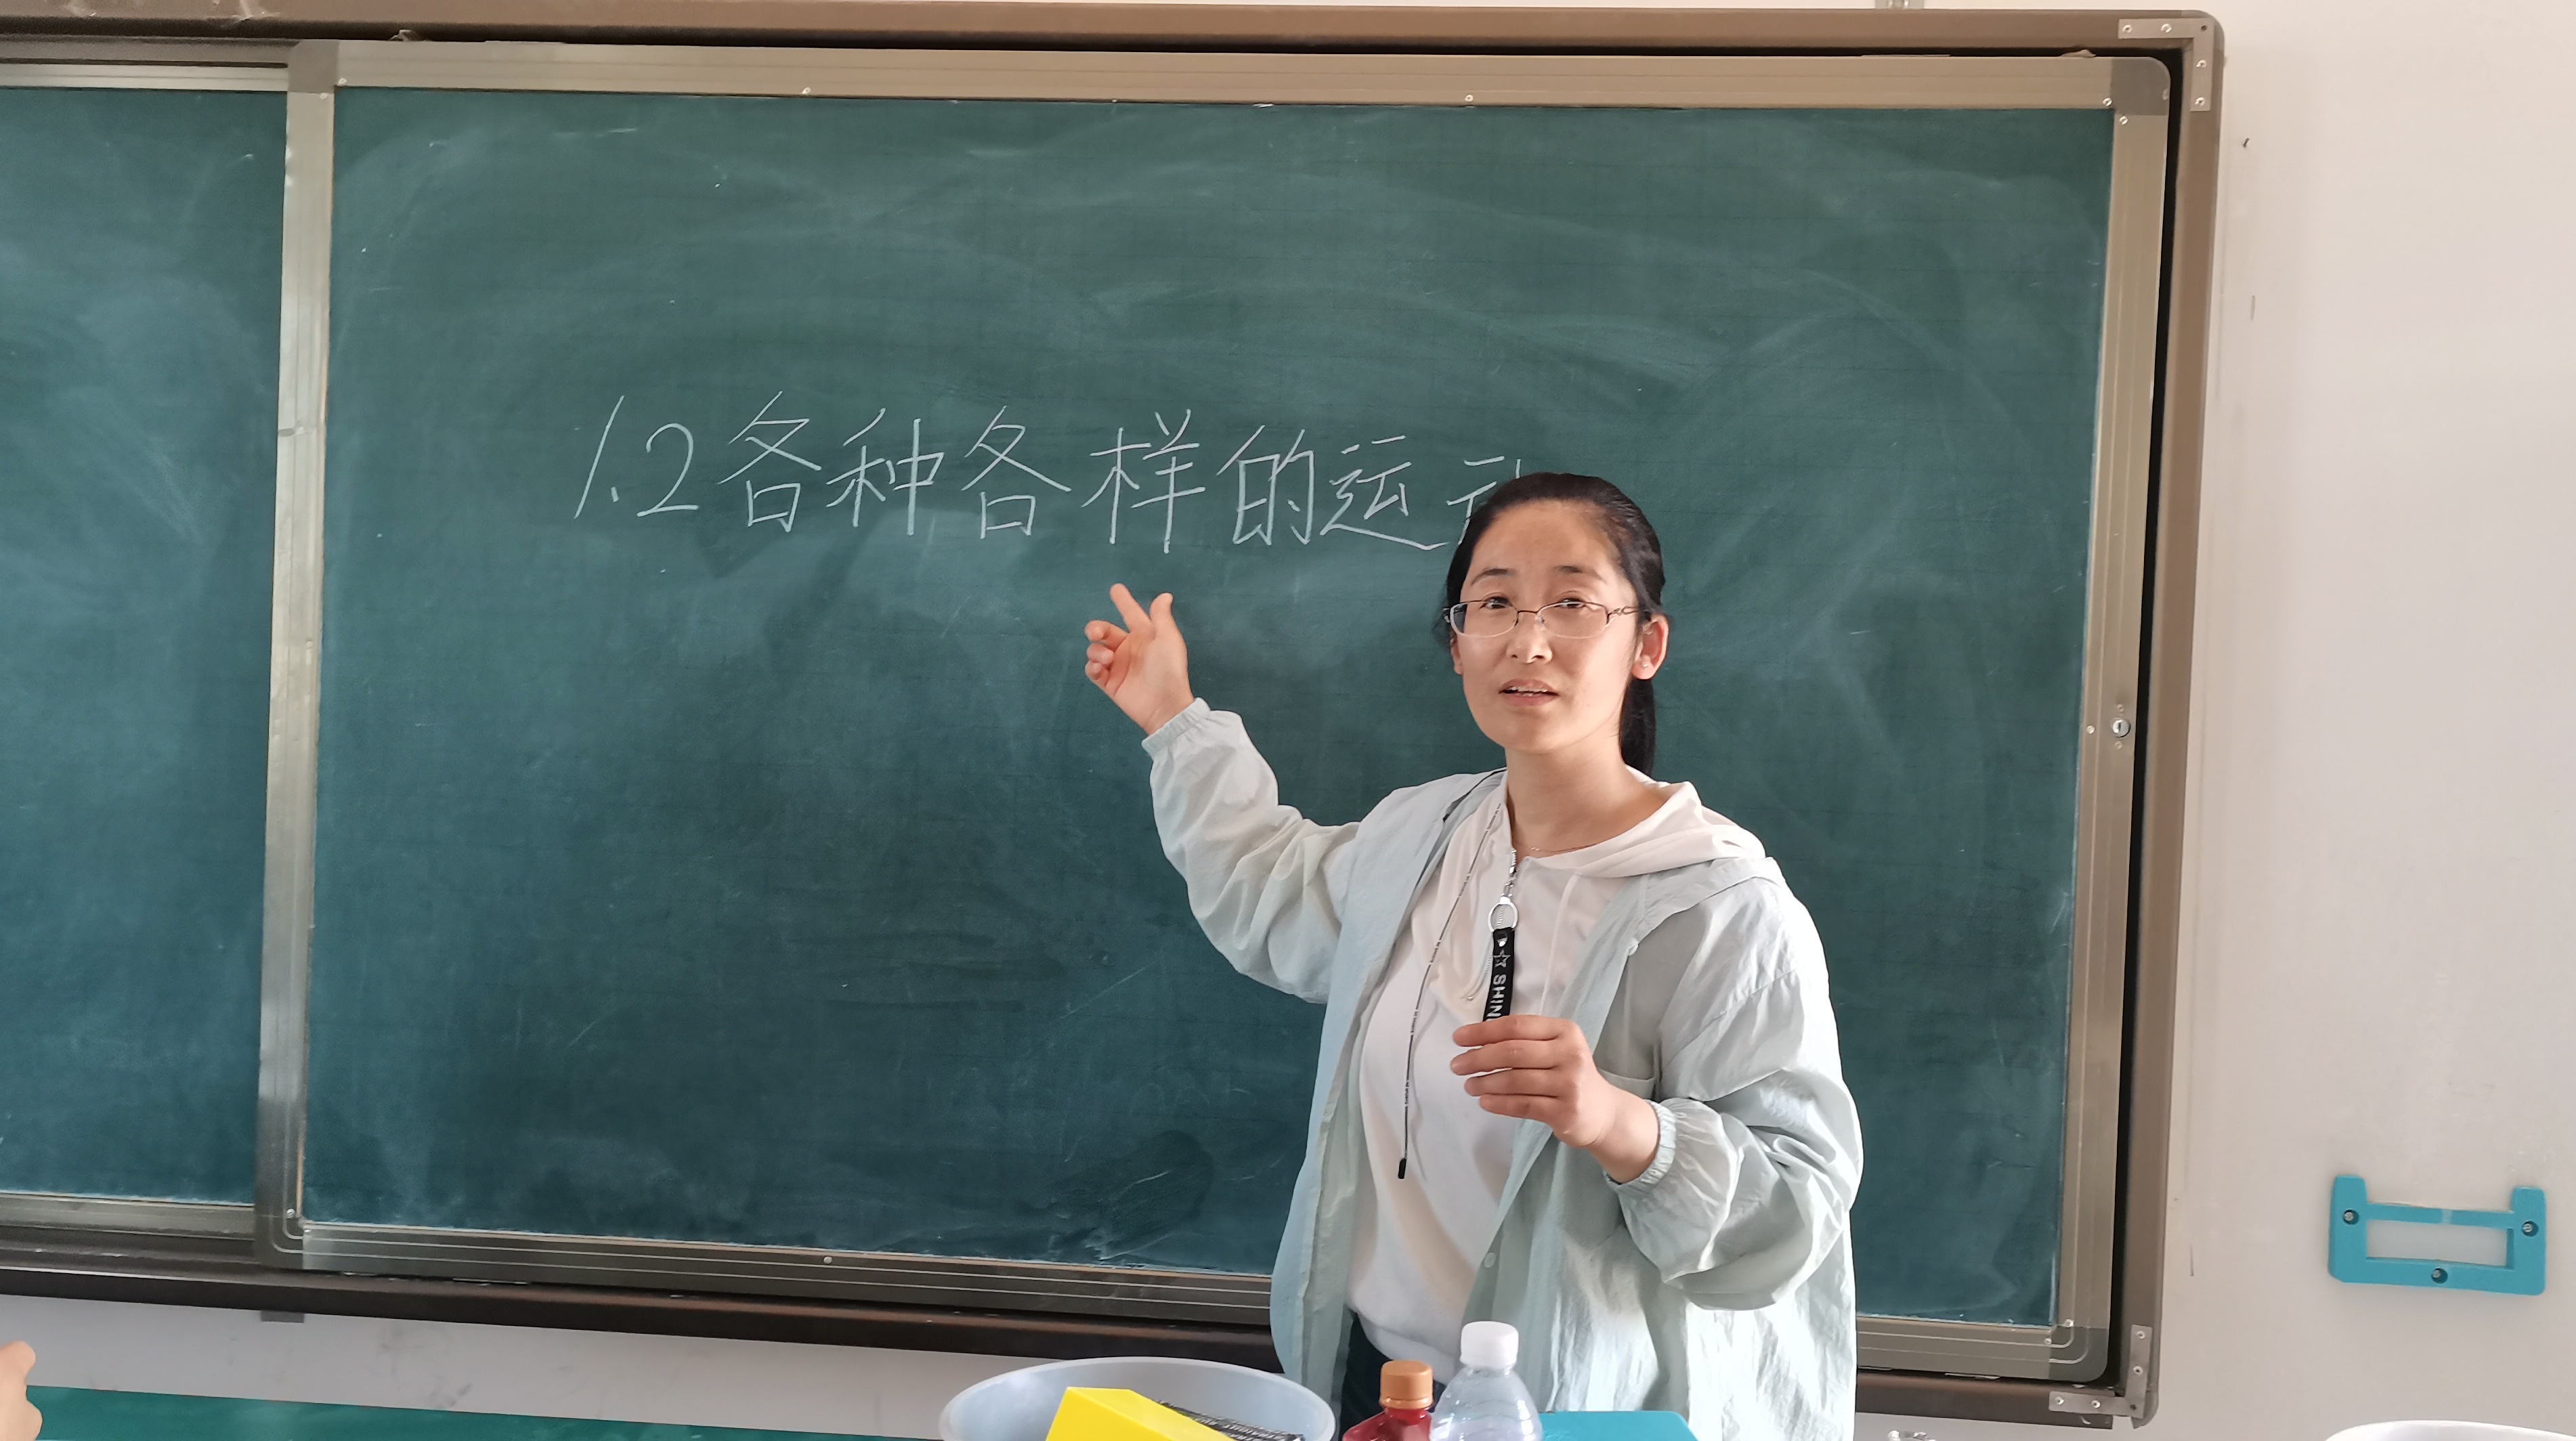 1.2各种各样的运动
SHIN